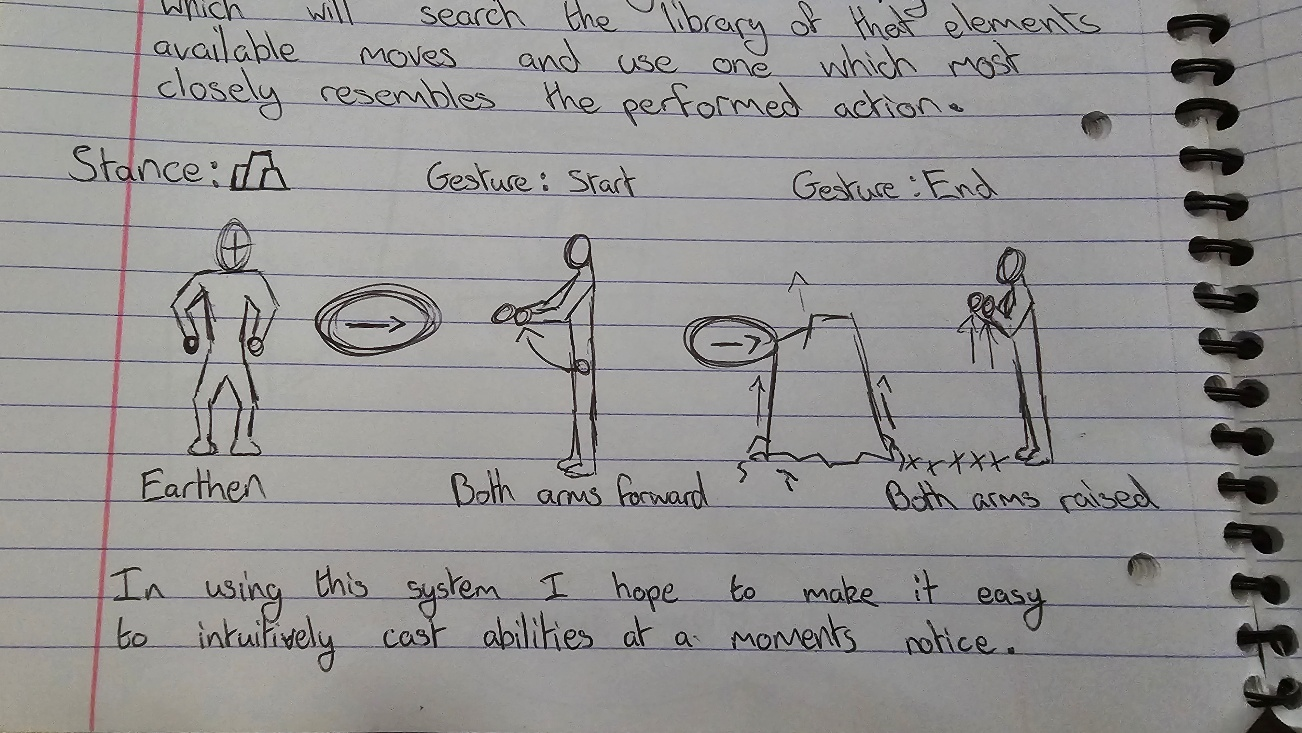 which will search the library of that elements
available moves and use one which most
closely resembles the performed action.
Stance: Gesture: Start Gesture: End
Earthen Both arms forward Both arms raised
In using this system I hope to make it easy
to intuitively cast abilities at a moments notice.